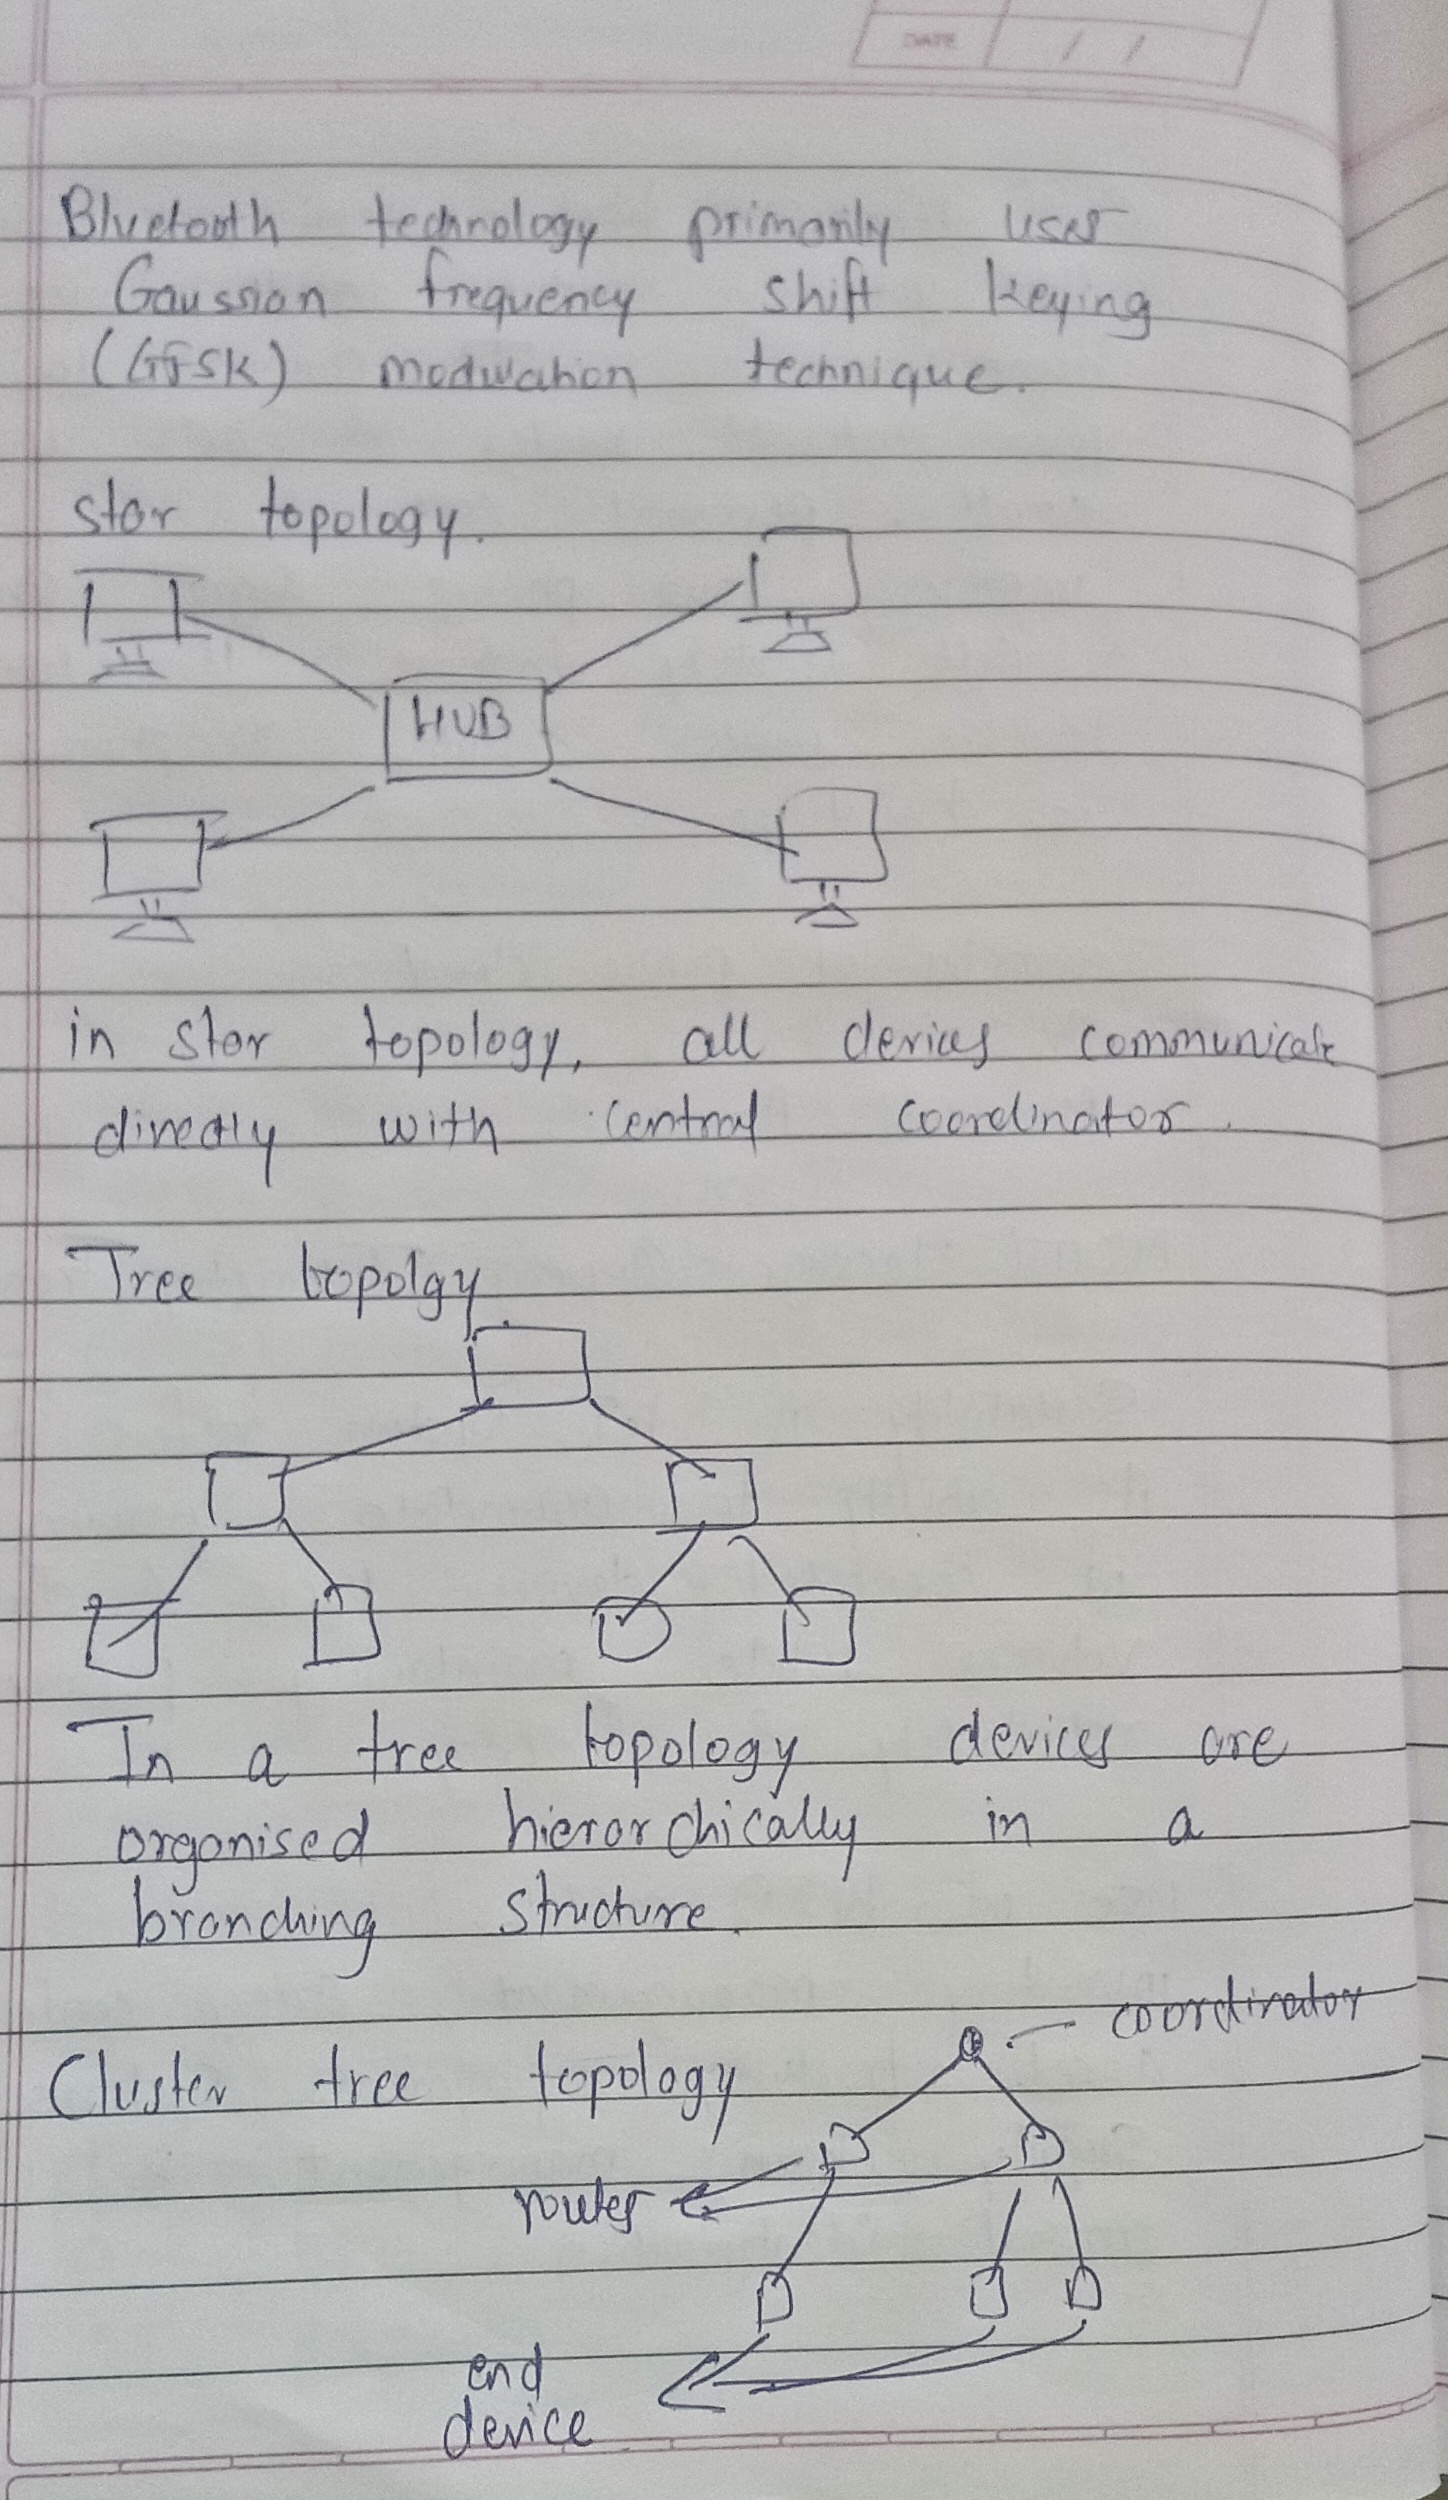 DATE / /
Bluetooth technology primarily uses
Gaussian frequency shift keying
(GFSK) modulation technique.
star topology.
HUB
in star topology, all devices communicate
directly with central coordinator.
Tree topolgy
In a tree topology devices are
organised hierarchically in a
branching structure.
coordinator
Cluster tree topology
router
end
device